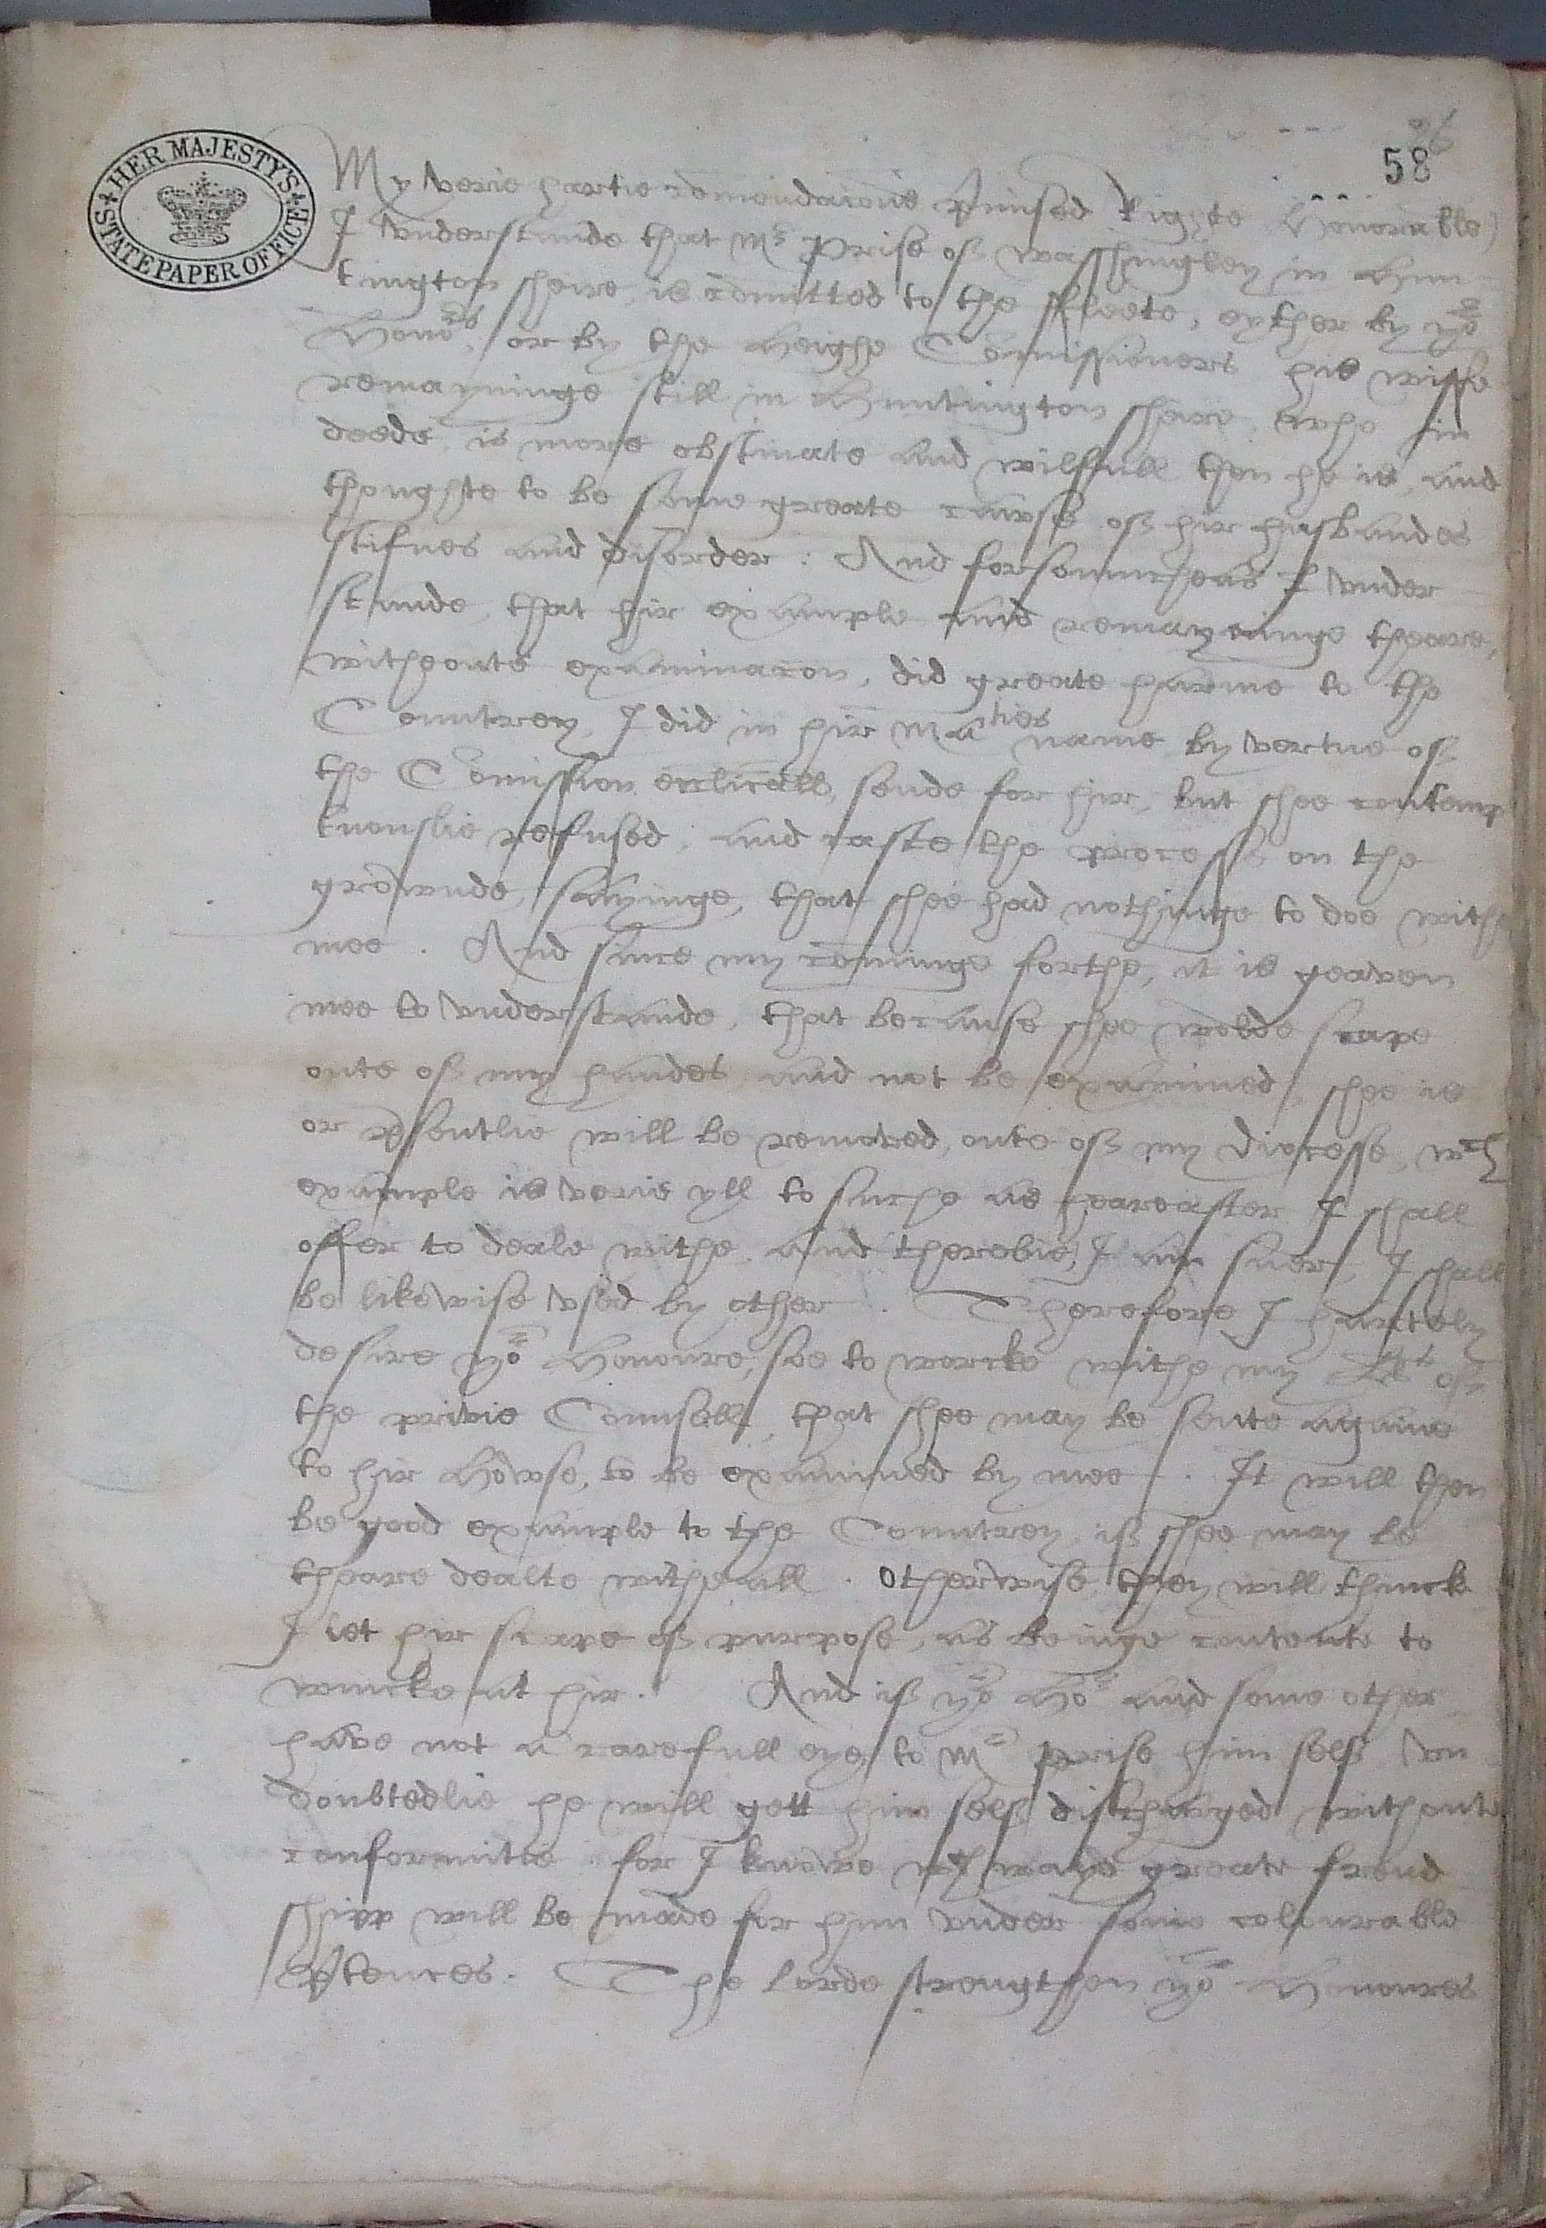 HER MAJESTY'S
STATE PAPER OFFICE
58
My verie hartie comendacons p̱mised Righte Honorable)
I vnderstande that mr Prise of Wasshingley in Hun-
tington sheire, is comitted to the ffleete, eyther by yor
Honors, or by the Heighe Comissioners his wiffe
remayninge still in Huntington sheire, who in
deede, is more obstinate and wilfull then he is, and
thoughte to be some greate cawse of hir husbandes
stifnes and disorder: And forsomucheas I vnder-
stande, that hir example and remayninge theare,
witheoute examinacon, did greate harme to the
Countrey, I did in hir Maties name by vertue of
the Comission ecclicall, sende for hir, but shee contemp
tuouslie refused, and caste the processe on the
growunde, sayinge, that shee had nothinge to doe withe
mee. And since my cominge forthe, it is geaven
mee to vnderstande, that because shee wolde scape
oute of my handes and not be examined, shee is
or p̱sentlie will be removed, oute of my Diocesse, wch
example is verie yll to suche as heareafter I shall
offer to deale withe, and therebie, I am suer, I shall
be likewise vsed by other. Therefore I hartely
desire yor Honoure, soe to worcke withe my LLs of
the privie Counsell, that shee may be sente againe
to hir Howse, to be examined by mee. It will then
be good example to the Countrey, if shee may be
theare dealte witheall. Otherwise, they will thincke
I let hir scape of purpose, as beinge contente to
wincke at hir. And if yor Hor and some other
have not a carefull eye to Mr Prise him self vn
doubtedlie he will gett him self discharged withoute
conformitie for I knowe wch waye greate frend-
shipp will be made for him vnder some colourable
p̱tences. The Lorde strengthen yor Honoures